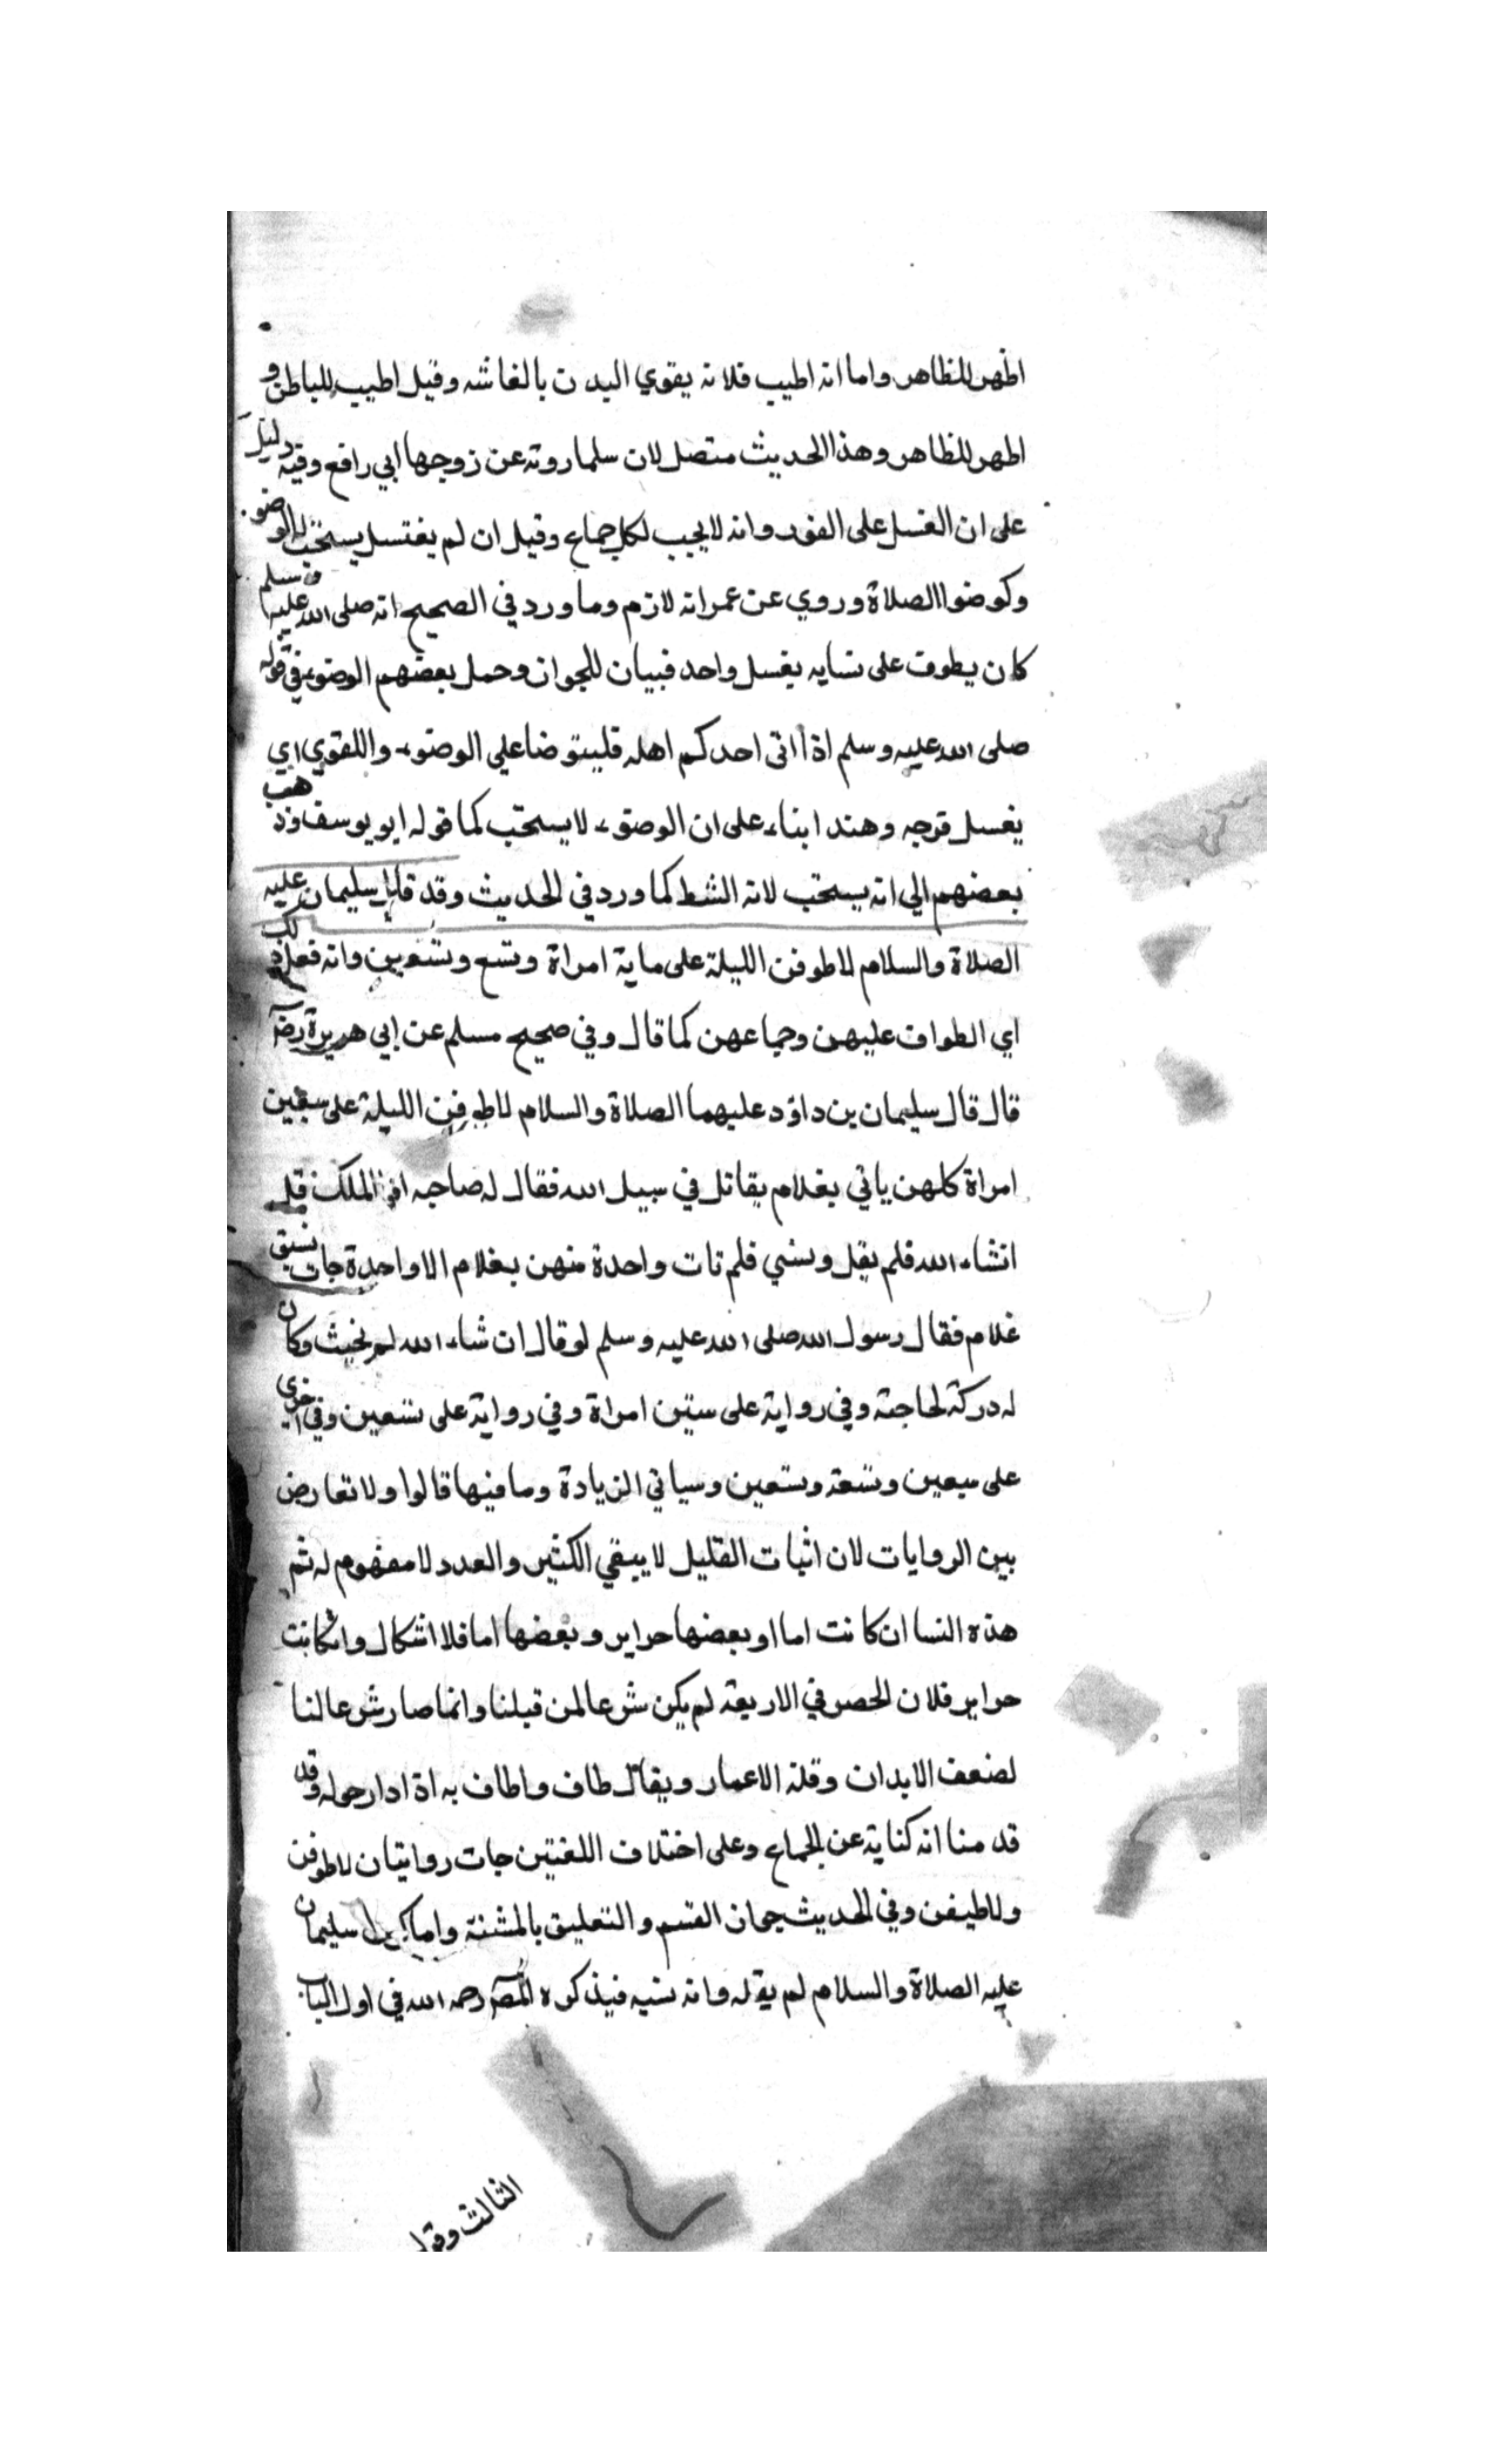 اطهر للظاهر واما انه اطيب فلانه يقوي البدن بالغاشه وقيل اطيب للباطن و
اطهر للظاهر وهذا الحديث متصل لان سلما روته عن زوجها ابي رافع وفيه دليل
على ان الغسل على الفور وانه لا يجب لكل جماع وقيل ان لم يغتسل يستحب الوضو
وكوضوا الصلاة وروي عن عمر انه لازم وما ورد في الصحيح انه صلى الله عليه وسلم
كان يطوف على نسايه بغسل واحد فبيان للجواز وحمل بعضهم الوضوء في قوله
صلى الله عليه وسلم اذا اتى احدكم اهله فليتوضا على الوضوء واللغوي اي
يغسل فرجه وهندا ابناء على ان الوضوء لا يستحب كما قوله ابو يوسف وذهب
بعضهم الى انه يستحب لانه انشط كما ورد في الحديث وقد قال سليمان عليه
الصلاة والسلام لاطوفن الليلة على ماية امراة وتسع وتسعين وانه فعل ذلك
اي الطواف عليهن وجماعهن كما قال وفي صحيح مسلم عن ابي هريرة رضه
قال قال سليمان بن داؤد عليهما الصلاة والسلام لاطوفن الليلة على سبعين
امراة كلهن ياتي بغلام يقاتل في سبيل الله فقال له صاحبه او الملك قل
انشاء الله فلم يقل ونسي فلم تات واحدة منهن بغلام الا واحدة جات بشق
غلام فقال رسول الله صلى الله عليه وسلم لو قال ان شاء الله لم يحنث وكان
له دركة لحاجته وفي رواية على ستين امراة وفي رواية على تسعين وفي اخرى
على سبعين وتسعة وتسعين وسياتي الزيادة وما فيها قالوا ولا تعارض
بين الروايات لان اثبات القليل لا يبقي الكثير والعدد لا مفهوم له ثم
هذه النسا ان كانت اما او بعضها حراير وبعضها اما فلا اشكال وان كانت
حراير فلان الحصر في الاربعة لم يكن شرعا لمن قبلنا وانما صار شرعا لنا
لضعف الابدان وقلة الاعمار ويقال طاف واطاف به اذا دار حوله وقد
قدمنا انه كناية عن الجماع وعلى اختلاف اللغتين جات روايتان لاطوفن
ولاطيفن وفي الحديث جواز القسم والتعليق بالمشئة واما سليمان
عليه الصلاة والسلام لم يقله وانه نسيه فيذكره المصه رحمه الله في اول الباب
الثالث وقول